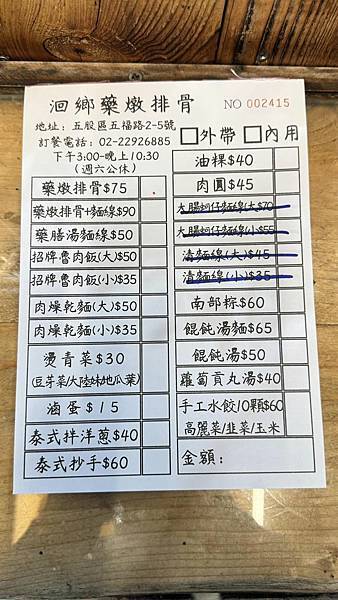 洄鄉藥燉排骨
NO 002415
地址：五股區五福路2-5號
訂餐電話：02-22926885
下午3:00-晚上10:30
(週六公休)
外帶 內用
藥燉排骨$75
藥燉排骨+麵線$90
藥膳湯麵線$50
招牌魯肉飯(大)$50
招牌魯肉飯(小)$35
肉燥乾麵(大)$50
肉燥乾麵(小)$35
燙青菜$30
(豆芽菜/大陸妹/地瓜葉)
滷蛋$15
泰式拌洋蔥$40
泰式抄手$60
油粿$40
肉圓$45
大腸蚵仔麵線(大$70)
大腸蚵仔麵線(小$55)
清麵線(大)$45
清麵線(小)$35
南部粽$60
餛飩湯麵$65
餛飩湯$50
蘿蔔貢丸湯$40
手工水餃10顆$60
高麗菜/韭菜/玉米
金額：